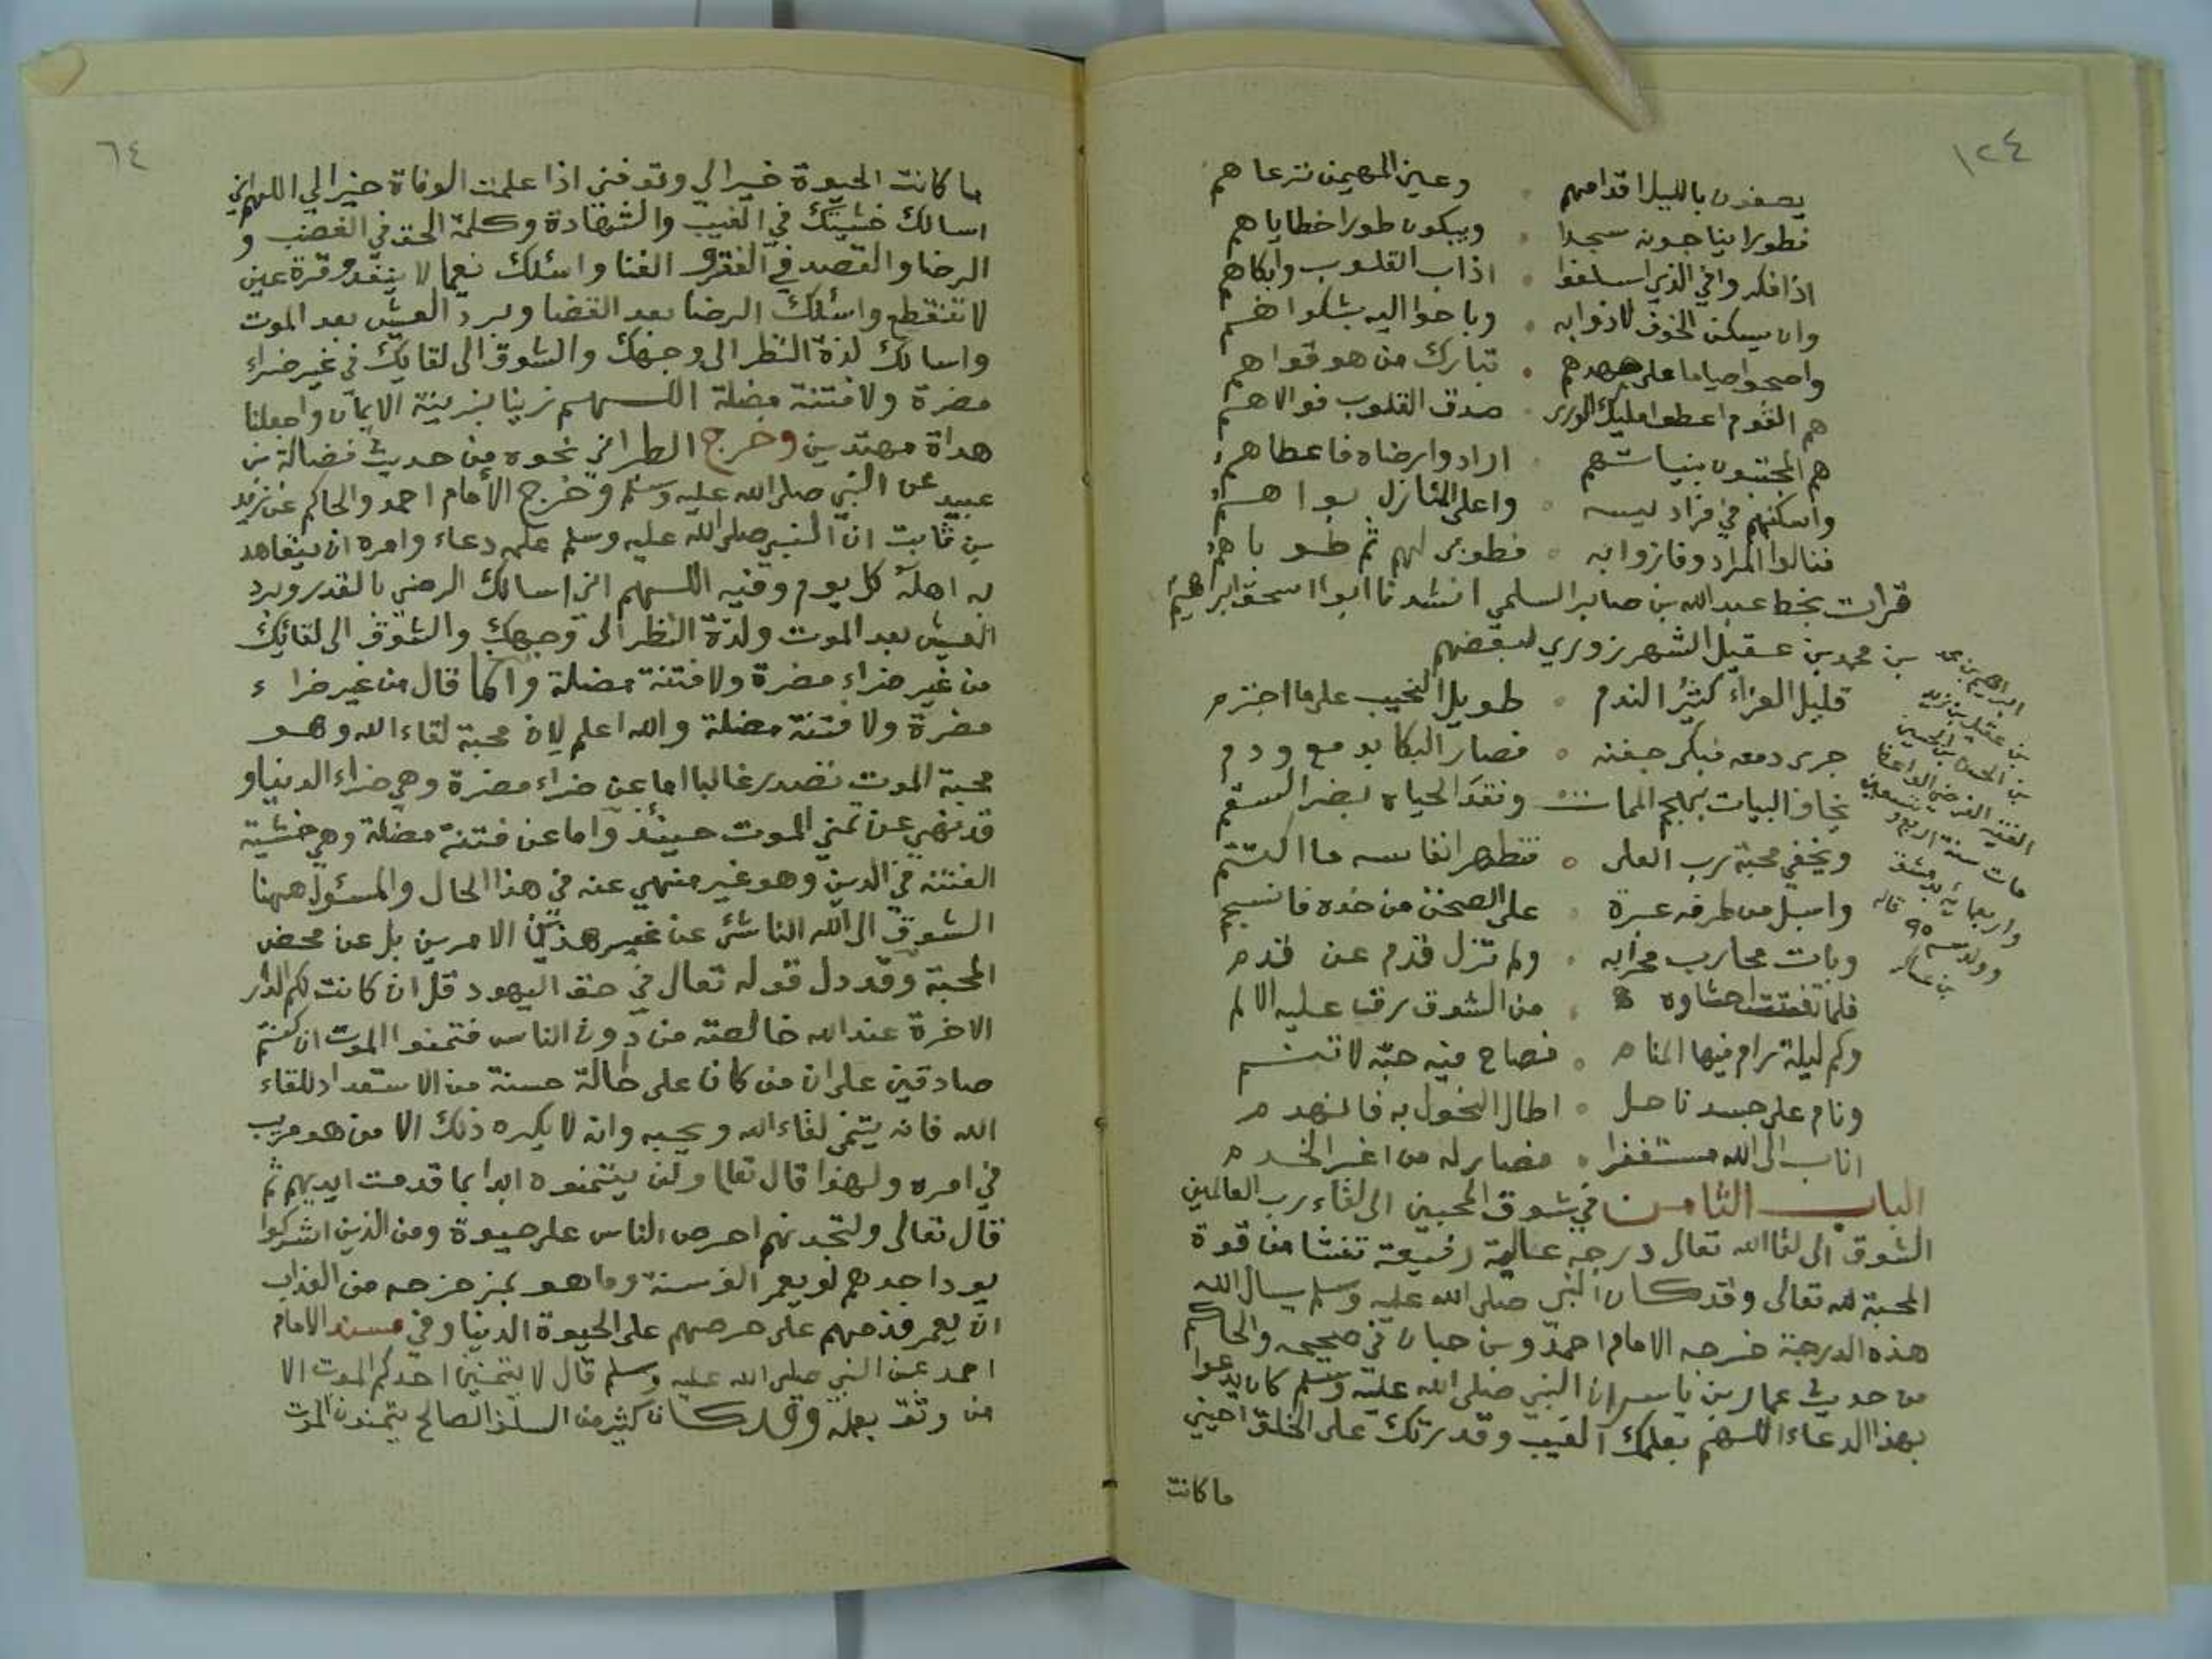 ١٢٤
يصفون بالليل اقدامهم وعين المهيمن ترعاهم
فطورا يناجونه سجدا ويبكون طورا خطاياهم
اذا فكروا في الذي اسلفوا اذاب القلوب وابكاهم
وان يسكن الخوف لاذوا به وباحوا اليه بشكواهم
واصبحوا صياما على جهدهم تبارك من هو قواهم
هم القوم اعطوا مليك الورى صدق القلوب فوالاهم
هم المخبتون بنياتهم ارادوا رضاه فاعطاهم
واسكنهم في فراديسه واعلى المنازل بواهم
فنالوا المراد وفازوا به فطوبى لهم ثم طوباهم
قرات بخط عبد الله بن صابر السلمي انشدنا ابو اسحق ابراهيم
بن محمد بن عقيل الشهرزوري لبعضهم
قليل العزاء كثير الندم طويل النحيب على ما اجترم
جرى دمعه فبكى جفنه فصار البكا بدمع ودم
يخاف البيات بهجم الممات ونقد الحياه بضر السقم
ويخفي محبة رب العلى فتظهر انفاسه ما اكتتم
واسبل من طرفه عبرة على الصحن من خده فانسجم
وبات محارب محرابه ولم تزل قدم عن قدم
فلما تفتتت احشاوه من الشوق رقت عليه الالم
وكم ليلة رام فيها المنام فصاح فيه حبه لا تنم
ونام على جسد ناحل اطال النحول به فانهدم
اناب الى الله مستغفرا فصار له من اعز الخدم
ابراهيم بن محمد
بن عقيل بن زيد
بن الحسن بن الحسين
الفقيه الفرضي الواعظ
مات سنة اربع وتسعين
واربعمائة بدمشق
وولد سنة ٩٥ قاله
بن عساكر
الباب الثامن في شوق المحبين الى لقاء رب العالمين
الشوق الى لقا الله تعالى درجه عالية رفيعة تنشا من قوة
المحبة لله تعالى وقد كان النبي صلى الله عليه وسلم يسال الله
هذه الدرجة خرجه الامام احمد وبن حبان في صحيحه والحاكم
من حديث عمار بن ياسر ان النبي صلى الله عليه وسلم كان يدعوا
بهذا الدعاء اللهم بعلمك الغيب وقدرتك على الخلق احيني
ما كانت
٦٤
ما كانت الحيوة خيرا لي وتوفني اذا علمت الوفاة خيرا لي اللهم اني
اسالك خشيتك في الغيب والشهادة وكلمة الحق في الغضب و
الرضا والقصد في الفقر و الغنا واسئلك نعيما لا ينفد وقرة عين
لا تنقطع واسئلك الرضا بعد القضا وبرد العيش بعد الموت
واسالك لذة النظر الى وجهك والشوق الى لقايك في غير ضراء
مضرة ولا فتنة مضلة اللهم زينا بزينة الايمان واجعلنا
هداة مهتدين وخرج الطبراني نحوه من حديث فضالة بن
عبيد عن النبي صلى الله عليه وسلم وخرج الامام احمد والحاكم عن زيد
بن ثابت ان النبي صلى الله عليه وسلم علمه دعاء وامره ان يتعاهد
به اهله كل يوم وفيه اللهم اني اسالك الرضى بالقدر وبرد
العيش بعد الموت ولذة النظر الى وجهك والشوق الى لقائك
من غير ضراء مضرة ولا فتنة مضلة وانما قال من غير ضراء
مضرة ولا فتنة مضلة والله اعلم لان محبة لقاء الله وهو
محبة الموت تصدر غالبا اما عن ضراء مضرة وهي ضراء الدنيا و
قد نهي عن تمني الموت حينئذ واما عن فتنة مضلة وهي خشية
الفتنه في الدين وهو غير منهي عنه في هذا الحال والمسئول ههنا
الشوق الى الله الناشئ عن غير هذين الامرين بل عن محض
المحبة وقد دل قوله تعالى في حق اليهود قل ان كانت لكم الدار
الاخرة عند الله خالصة من دون الناس فتمنوا الموت ان كنتم
صادقين على ان من كان على حالة حسنة من الاستعداد للقاء
الله فانه يتمنى لقاء الله ويحبه وانه لا يكره ذلك الا من هو مريب
في امره ولهذا قال تعالى ولن يتمنوه ابدا بما قدمت ايديهم ثم
قال تعالى ولتجدنهم احرص الناس على حيوة ومن الذين اشركوا
يود احدهم لو يعمر الف سنة وما هو بمزحزحه من العذاب
ان يعمر فذمهم على حرصهم على الحيوة الدنيا وفي مسند الامام
احمد عن النبي صلى الله عليه وسلم قال لا يتمنين احدكم الموت الا
من وثق بعمله وقد كان كثير من السلف الصالح يتمنون الموت